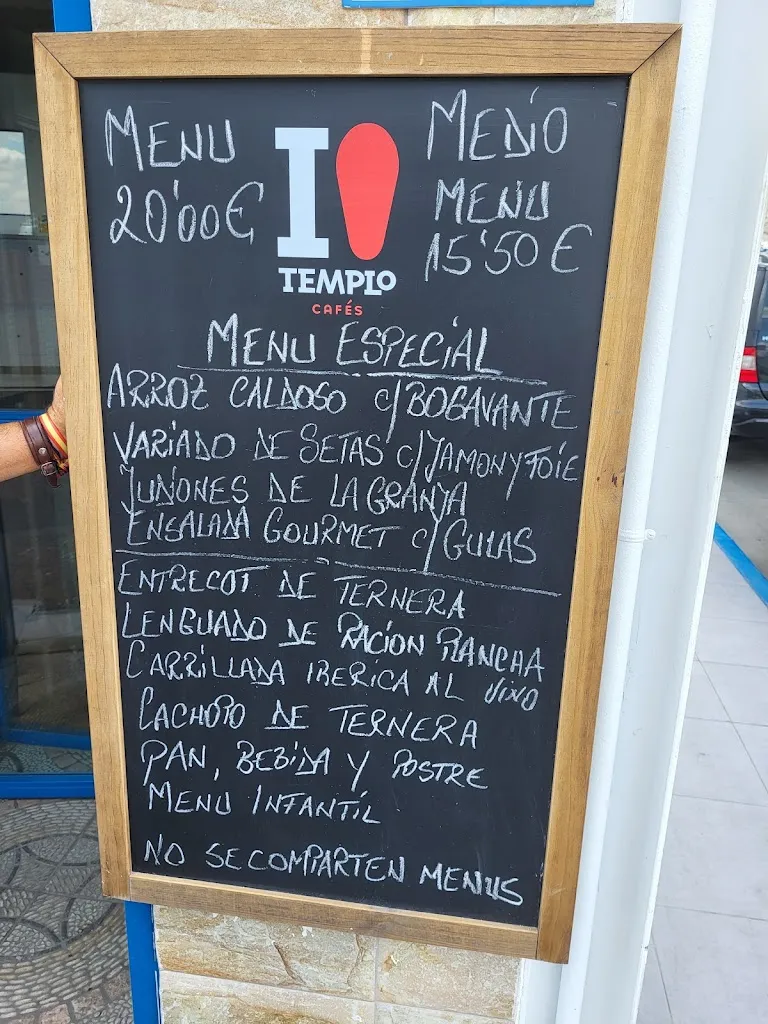 MENU
20'00€
I
TEMPLO
CAFÉS
MEDIO
MENU
15'50€
MENU ESPECIAL
ARROZ CALDOSO c/BOGAVANTE
VARIADO DE SETAS c/JAMON Y FOIE
JUDIONES DE LA GRANJA
ENSALADA GOURMET c/GULAS
ENTRECOT DE TERNERA
LENGUADO DE RACION PLANCHA
CARRILLADA IBERICA AL VINO
CACHOPO DE TERNERA
PAN, BEBIDA Y POSTRE
MENU INFANTIL
NO SE COMPARTEN MENUS